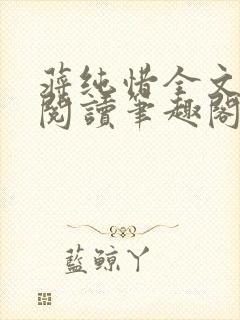 蔣純惜全文
閱讀筆趣閣
藍鯨丫